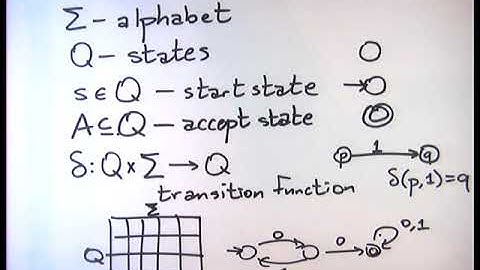 Σ - alphabet
Q - states
s ∈ Q - start state
A ⊆ Q - accept state
δ: Q × Σ → Q
transition function
p 1 q
δ(p,1)=q
Σ
Q
0 0 0,1